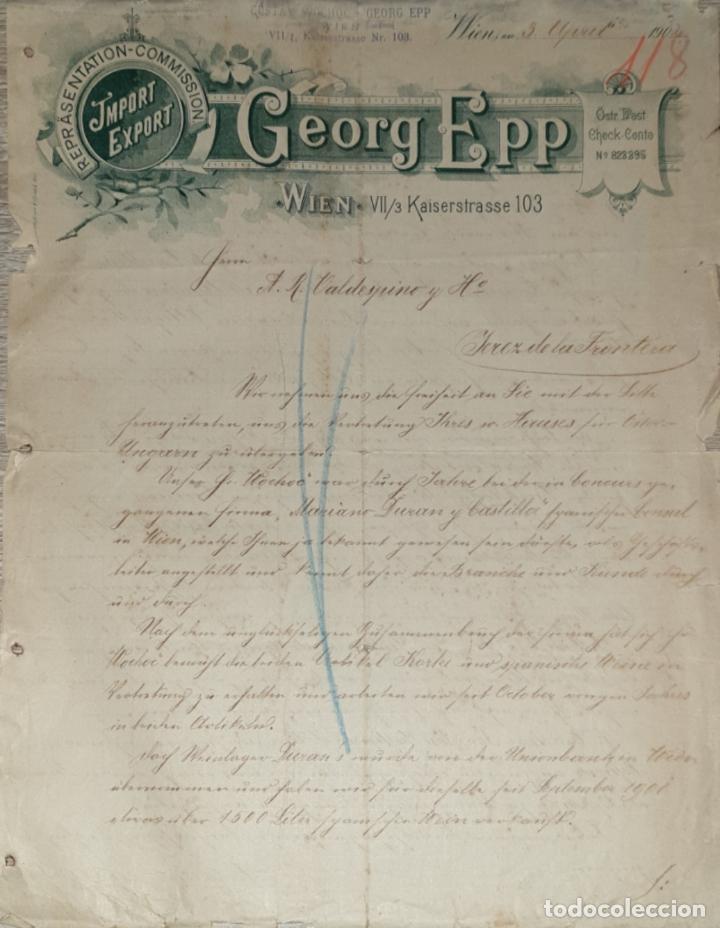 GUSTAV WOCHOČ - GEORG EPP
WIEN
VII/1, Kaiserstrasse Nr. 103.
Wien, am 3. April 190
118
REPRÄSENTATION-COMMISSION
IMPORT
EXPORT
Georg Epp
Östr. Post
Check-Conto
No 823395
WIEN VII/3 Kaiserstrasse 103
Herrn
A. R. Valdespino y Ho
Jerez de la Frontera
Wir nehmen uns die Freiheit an Sie mit der Bitte
heranzutreten, uns die Vertretung Ihres w. Hauses für Österr.
Ungarn zu übergeben.
Unser Hr. Wochoč war durch Jahre bei der in Concurs ge-
gangenen Firma, "Mariano Duran y Castilla" spanischer Consul
in Wien, welche Ihnen ja bekannt gewesen sein dürfte, als Geschäfts-
leiter angestellt und kennt daher die Branche und Kunde durch
und durch.
Nach dem unglückseligen Zusammenbruch der Firma hat sich Hr
Wochoč bemüht die beiden Artikel Korke und spanische Weine in
Vertretung zu erhalten und arbeiten wir seit October vorigen Jahres
in beiden Artikeln.
Das Weinlager Duran's wurde von der Unionbank in Wien
übernommen und haben wir für dieselbe seit September 1901
etwas über 1500 Liter spanischer Wein verkauft.
./.
todocoleccion
todocoleccion.net